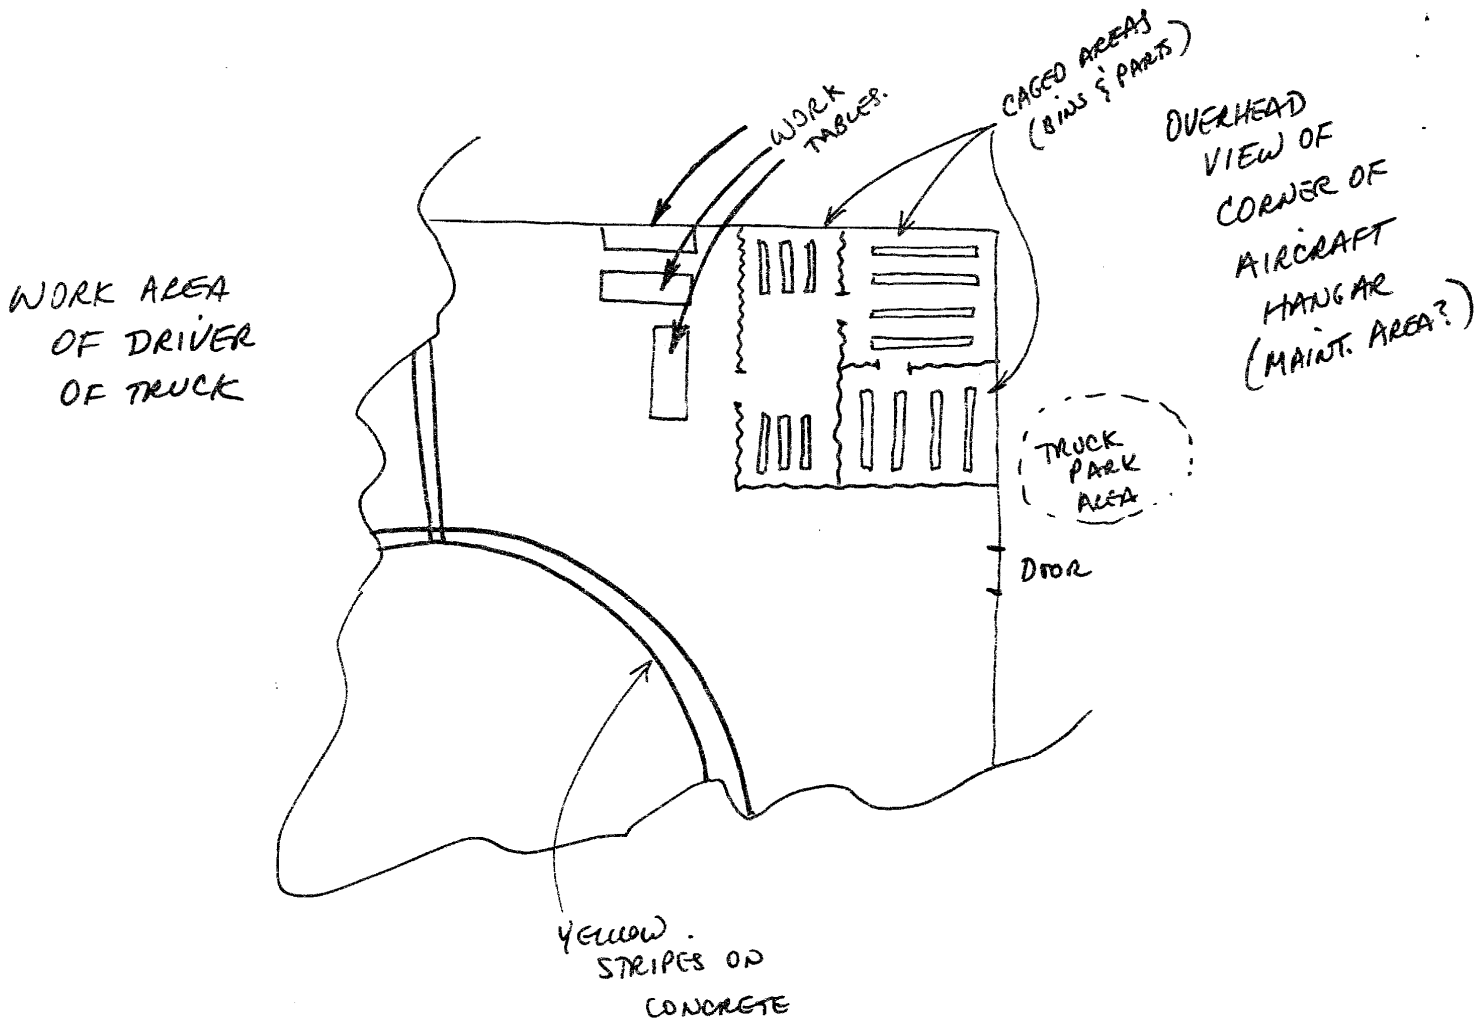 WORK AREA
OF DRIVER
OF TRUCK
WORK
TABLES.
CAGED AREAS
(BINS & PARTS)
OVERHEAD
VIEW OF
CORNER OF
AIRCRAFT
HANGAR
(MAINT. AREA?)
TRUCK
PARK
AREA
DOOR
YELLOW
STRIPES ON
CONCRETE